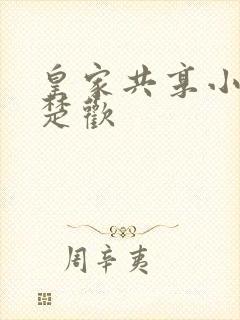 皇家共享小
楚歡
周辛夷